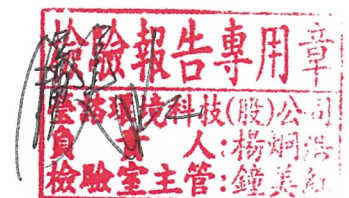 檢驗報告專用章
環境科技(股)公司
負責人:楊烱浩
檢驗室主管:鐘美紅